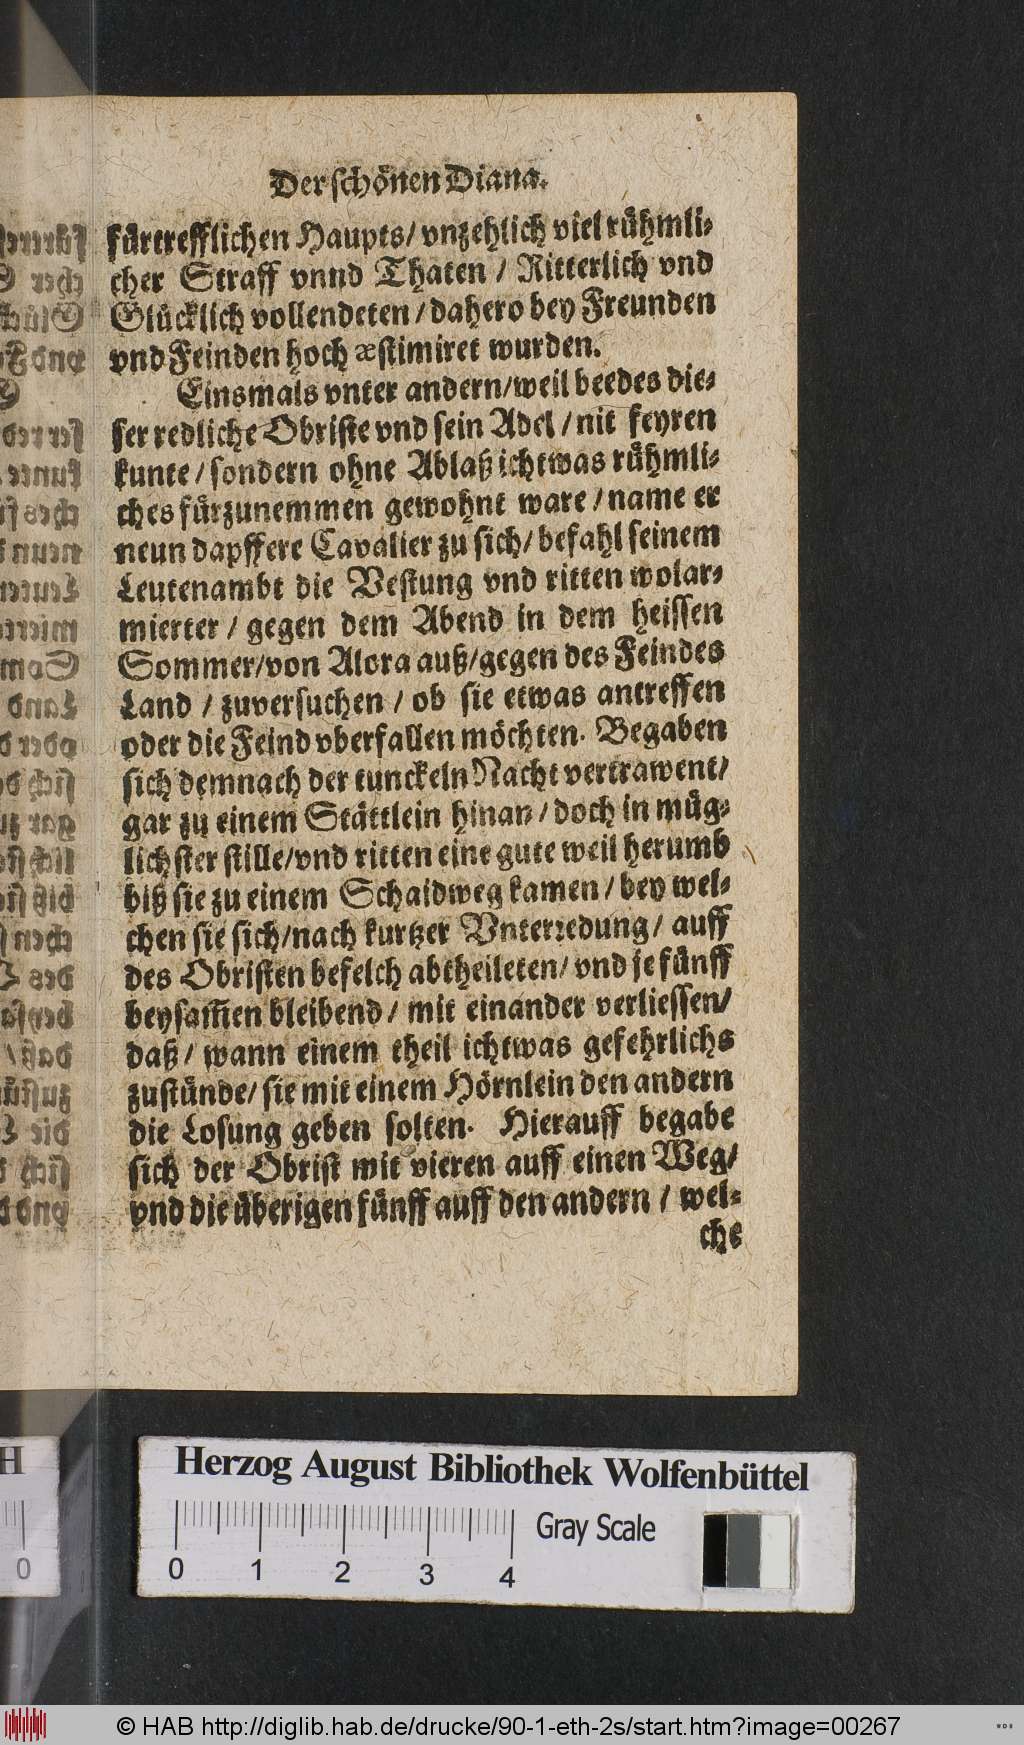 Der schönen Diana.
fürtrefflichen Haupts/ vnzehlich viel rühmli-
cher Straff vnnd Thaten / Ritterlich vnd
Glücklich vollendeten / dahero bey Freunden
vnd Feinden hoch æstimiret wurden.
Einsmals vnter andern/weil beedes die-
ser redliche Obriste vnd sein Adel / nit feyren
kunte / sondern ohne Ablaß ichtwas rühmli-
ches fürzunemmen gewohnt ware / name er
neun dapffere Cavalier zu sich/ befahl seinem
Leutenambt die Vestung vnd ritten wolar-
mierter / gegen dem Abend in dem heissen
Sommer/von Alora auß/gegen des Feindes
Land / zuversuchen / ob sie etwas antreffen
oder die Feind vberfallen möchten. Begaben
sich demnach der tunckeln Nacht vertrawent/
gar zu einem Stättlein hinan / doch in müg-
lichster stille/vnd ritten eine gute weil herumb
biß sie zu einem Schaidweg kamen / bey wel-
chen sie sich/nach kurtzer Vnterredung/ auff
des Obristen befelch abtheileten/ vnd je fünff
beysam̃en bleibend / mit einander verliessen/
daß / wann einem theil ichtwas gefehrlichs
zustünde/ sie mit einem Hörnlein den andern
die Losung geben solten. Hierauff begabe
sich der Obrist mit vieren auff einen Weg/
vnd die überigen fünff auff den andern / wel-
che
Herzog August Bibliothek Wolfenbüttel
Gray Scale
0 1 2 3 4
H
0
© HAB http://diglib.hab.de/drucke/90-1-eth-2s/start.htm?image=00267